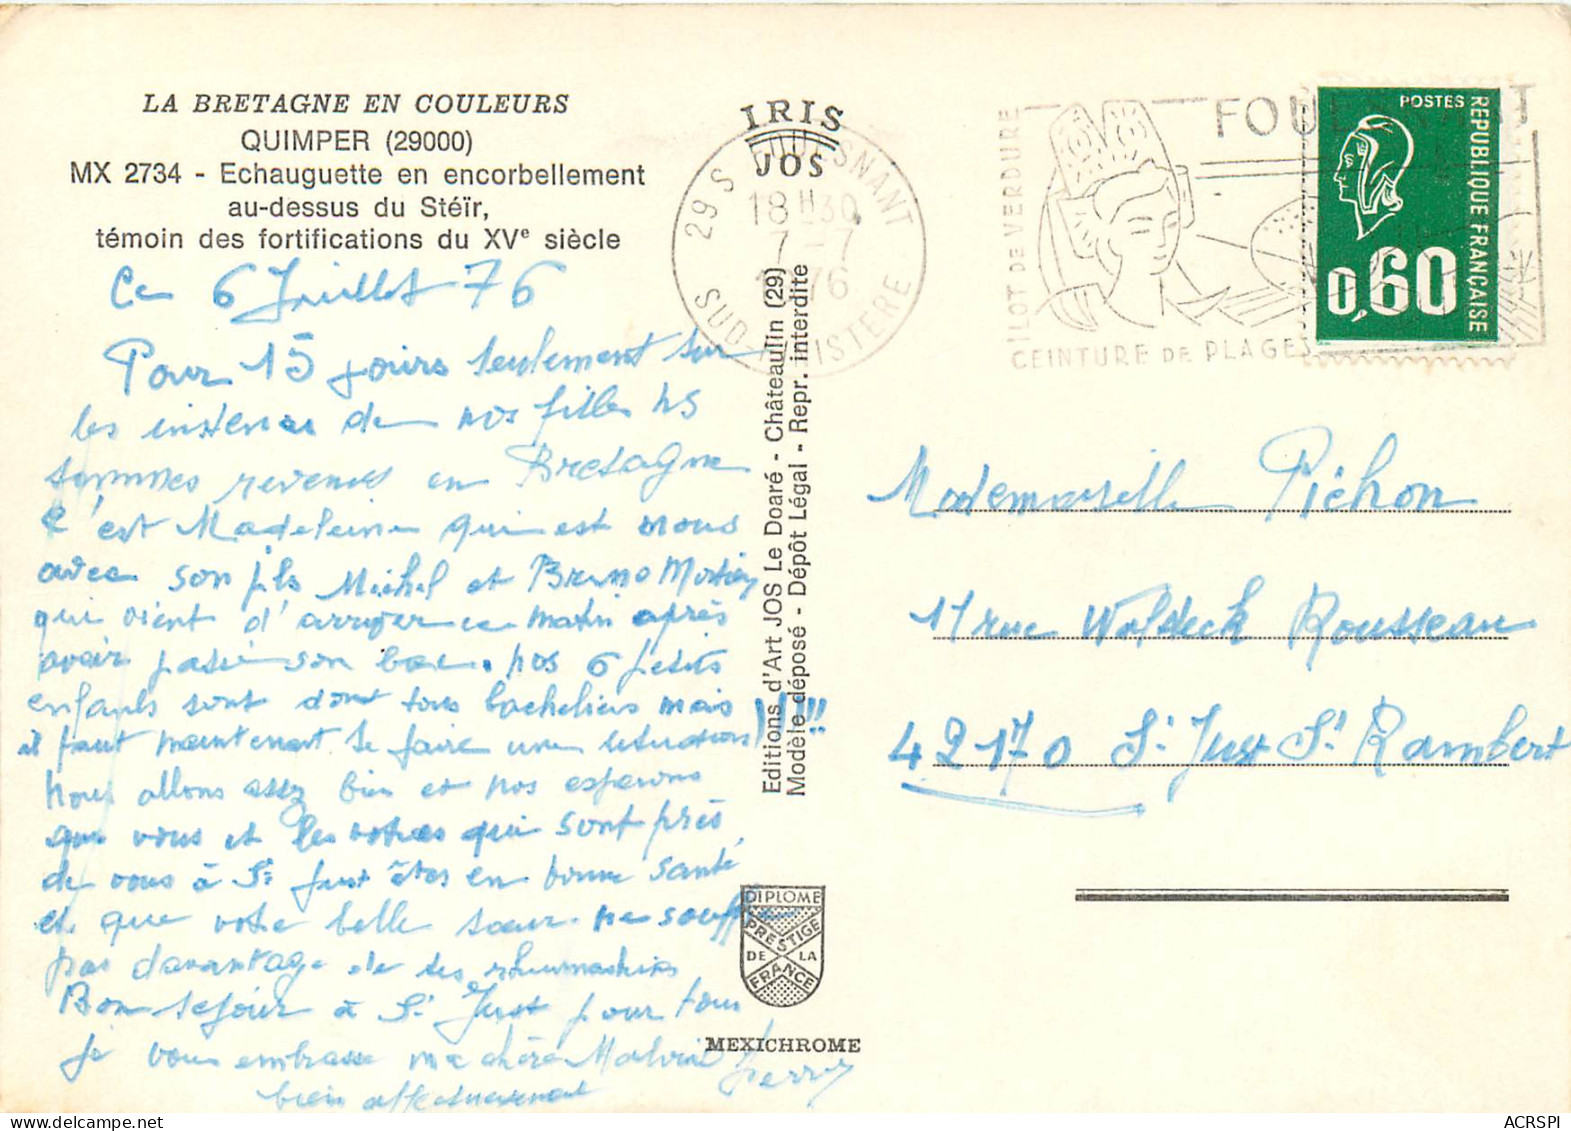 LA BRETAGNE EN COULEURS
QUIMPER (29000)
MX 2734 - Echauguette en encorbellement
au-dessus du Stéïr,
témoin des fortifications du XVe siècle
Ce 6 Juillet 76
Pour 15 jours seulement sur
les instances de nos filles ns
sommes revenus en Bretagne
c'est Madeleine qui est nous
avec son fils Michel et Bruno
qui vient d'arriver ce matin après
avoir passé son bac. nos 6 petits
enfants sont dont tous bacheliers mais
il faut maintenant se faire une situation !!!!!
Nous allons assez bien et nos espérons
que vous et les votres qui sont près
de vous à St Just êtes en bonne santé
et que votre belle sœur ne souffre
pas davantage de ses rhumatismes
Bon séjour à St Just pour tous
je vous embrasse ma chère
bien affectueusement
IRIS
JOS
29 S FOUESNANT
18 H 30
7-7
1976
SUD-FINISTERE
Editions d'Art JOS Le Doaré - Châteaulin (29)
Modèle déposé - Dépôt Légal - Repr. interdite
DIPLOME
PRESTIGE
DE LA
FRANCE
MEXICHROME
FOUESNANT
ILOT DE VERDURE
CEINTURE DE PLAGES
POSTES
REPUBLIQUE FRANÇAISE
0,60
Mademoiselle Pichon
11 rue Waldeck Rousseau
42170 St Just St Rambert
ACRSPI